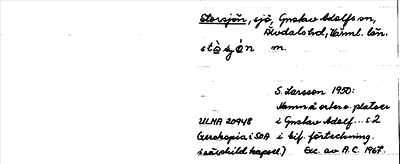 Storsjön, sjö, Gustav Adolfs sn,
Älvdals hd, Värml. län.
stòsjón m.
S. Larsson 1950:
Namn å orter o. platser
ULMA 20948 i Gustav Adolf... s. 2
(xerokopia i SOA i bif. förteckning.
i särskild kapsel) Exc. av A.C. 1967.